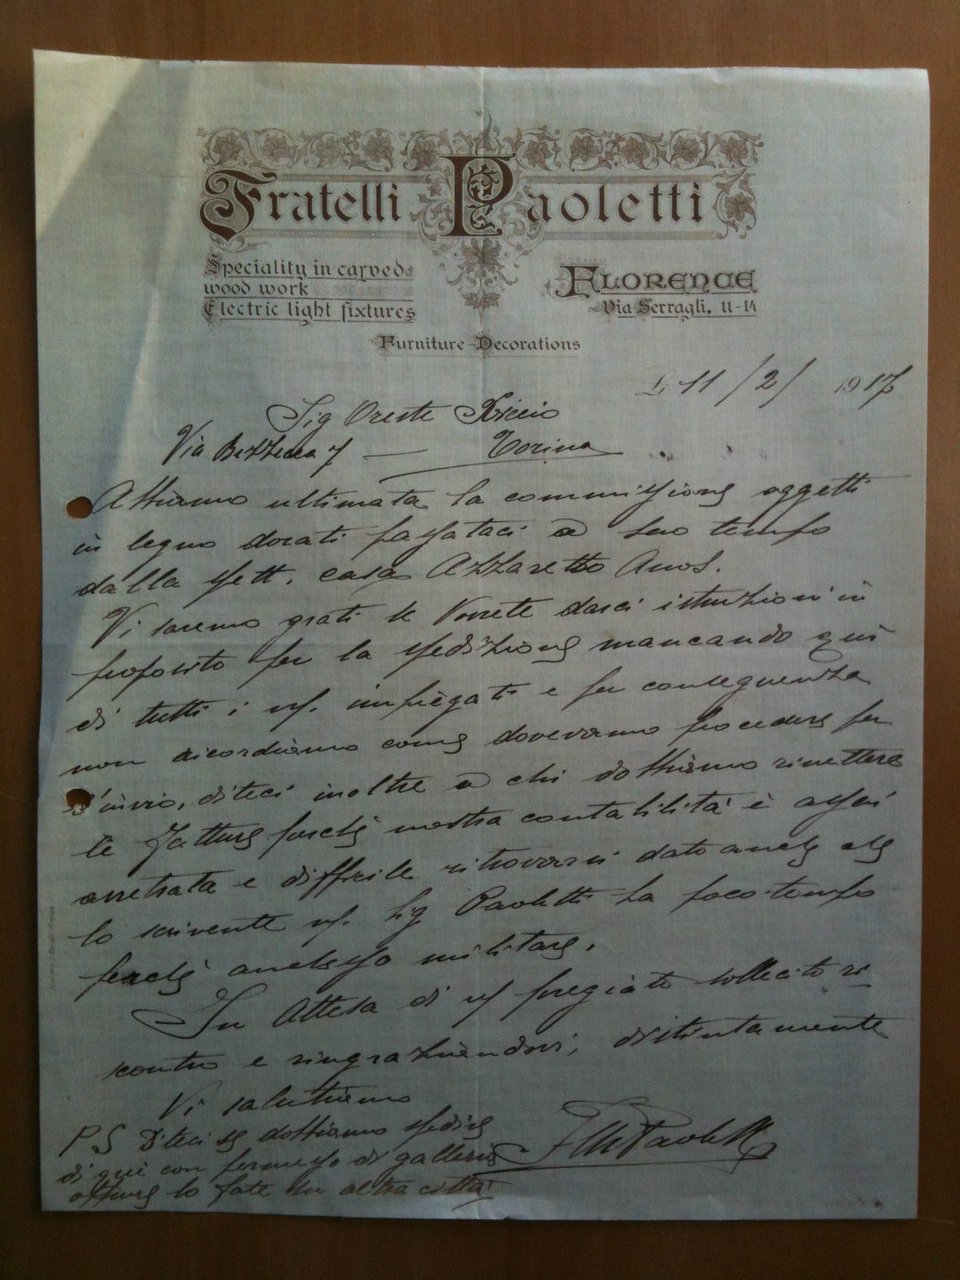 Fratelli Paoletti
Speciality in carved
wood work
Electric light fixtures
Florence
Via Serragli, 11-14
Furniture-Decorations
11/2/1917
Sig Oreste
Via Bezzecca 7 — Torino
Abbiamo ultimata la commissione oggetti
in legno dorati passataci a suo tempo
dalla spett. casa Azzaretto Amos.
Vi saremo grati se vorrete darci istruzioni in
proposito per la spedizione mancando qui
di tutti i ns. impiegati e per conseguenza
non ricordiamo come dovevamo procedere per
l'invio, diteci inoltre a chi dobbiamo rimettere
le fatture perchè nostra contabilità è assai
arretrata e difficile ritrovarsi dato anche che
lo scrivente ns. Sig Paoletti ha poco tempo
perchè anch'esso militare.
In attesa di vs pregiato sollecito ri-
scontro e ringraziandovi, distintamente
Vi salutiamo
F.lli Paoletti
PS Diteci se dobbiamo spedire
di qui con permesso di galleria
oppure lo fate in altra città